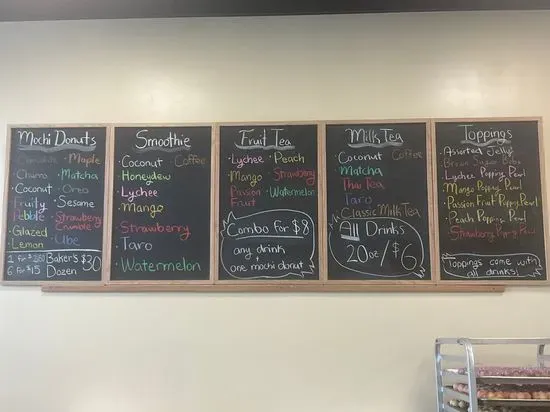 Mochi Donuts
Chocolate · Maple
· Churro · Matcha
· Coconut · Oreo
· Fruity · Sesame
Pebble · Strawberry
Crumble
· Glazed
· Lemon · Ube
1 for $
6 for $15
Baker's $30
Dozen
Smoothie
· Coconut · Coffee
· Honeydew
· Lychee
· Mango
· Strawberry
· Taro
· Watermelon
Fruit Tea
· Lychee · Peach
· Mango · Strawberry
· Passion · Watermelon
Fruit
Combo for $8
any drink
+
one mochi donut
Milk Tea
· Coconut Coffee
· Matcha
· Thai Tea
· Taro
· Classic Milk Tea
All Drinks
20oz/$6
Toppings
· Assorted Jelly
· Brown Sugar Boba
· Lychee Popping Pearl
· Mango Popping Pearl
· Passion Fruit Popping Pearl
· Peach Popping Pearl
· Strawberry Popping Pearl
Toppings come with
all drinks!